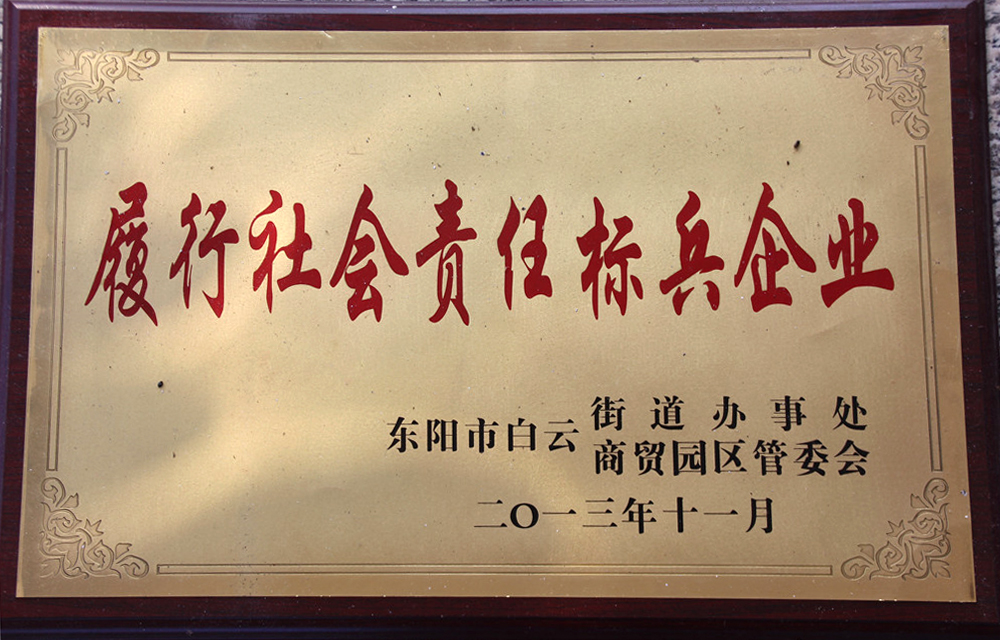 履行社会责任标兵企业
东阳市白云 街道办事处
商贸园区管委会
二〇一三年十一月